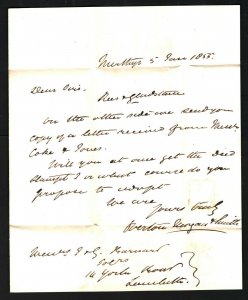 Merthyr 5 June 1855
Dear Sirs
Rees & Gladstone
On the other side we send you
copy of a letter received from Messrs
Coke & Jones.
Will you at once get the deed
stampt or what course do you
propose to adopt
We are
yours truly
Messrs J & G
14 York Road
Lambeth